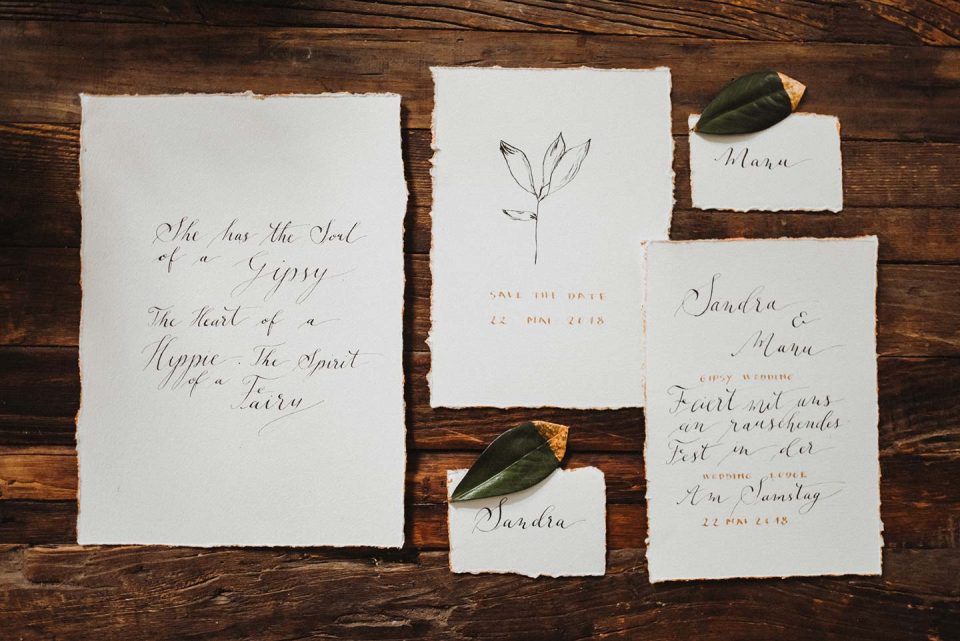 She has the Soul
of a Gipsy
The Heart of a
Hippie. The Spirit
of a Fairy
SAVE THE DATE
22 MAI 2018
Manu
Sandra
Sandra
&
Manu
GIPSY WEDDING
Feiert mit uns
an rauschendes
Fest in der
WEDDING LODGE
Am Samstag
22 MAI 2018